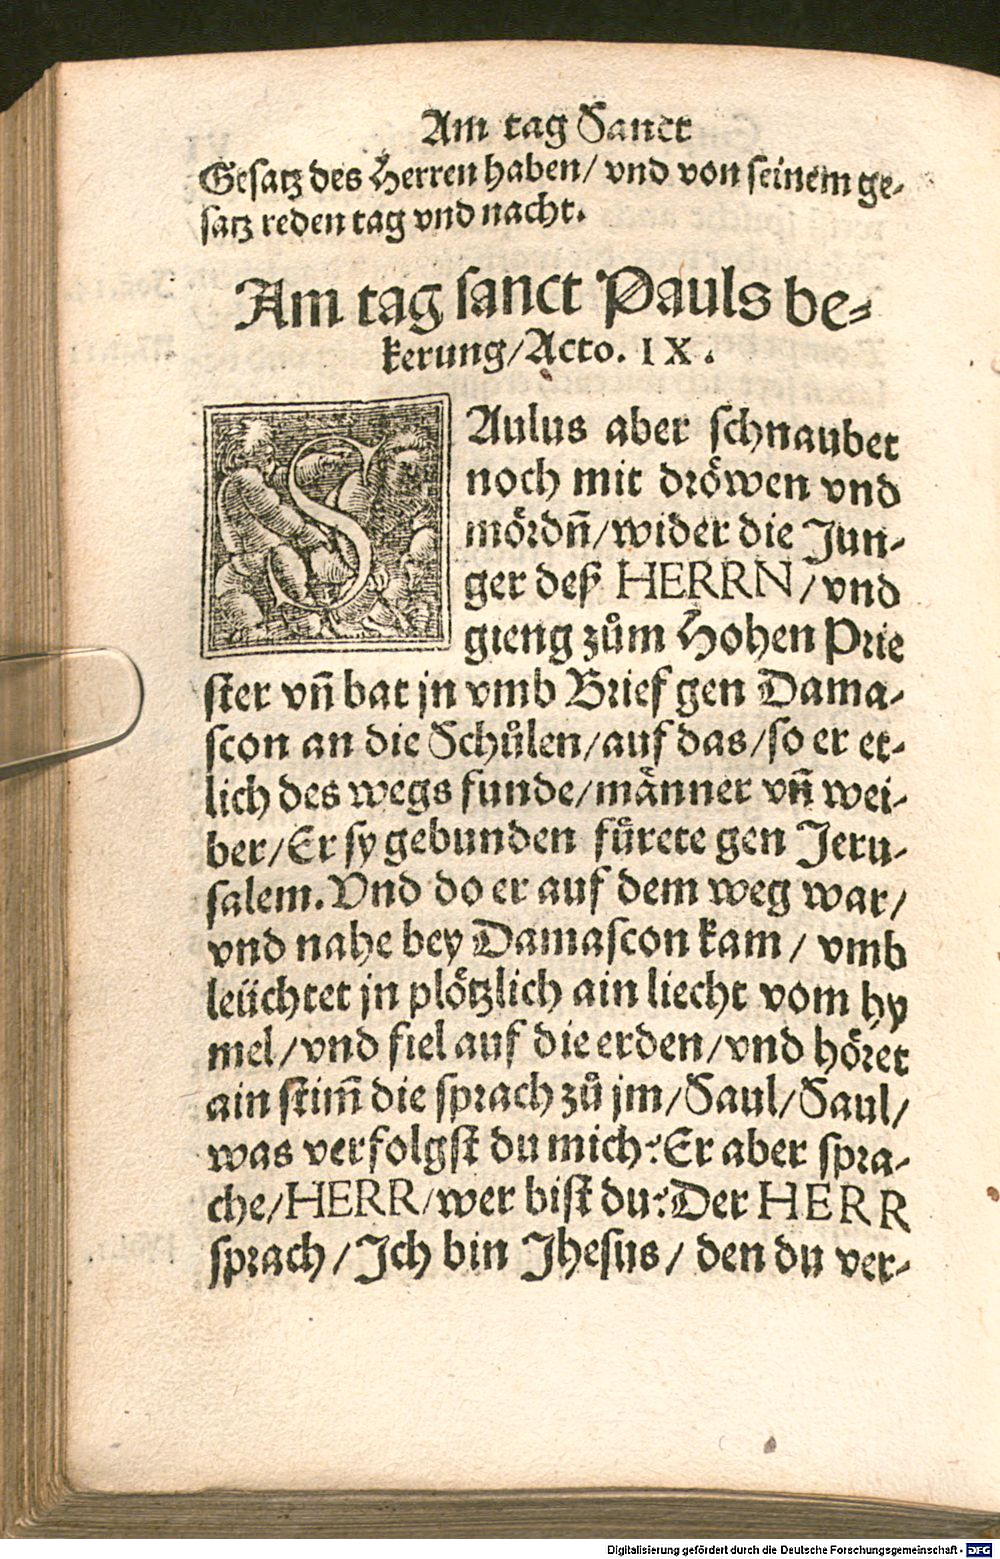 Am tag Sanct
Gesatz des Herren haben/ vnd von seinem ge-
satz reden tag vnd nacht.
Am tag sanct Pauls be-
kerung/Acto. IX.
SAulus aber schnaubet
noch mit dröwen vnd
mördñ/wider die Jun-
ger deß HERRN/vnd
gieng zům Hohen Prie
ster vñ bat jn vmb Brief gen Dama-
scon an die Schůlen/auf das/so er et-
lich des wegs funde/männer vñ wei-
ber/Er sy gebunden fůrete gen Jeru-
salem. Vnd do er auf dem weg war/
vnd nahe bey Damascon kam/ vmb
leüchtet jn plötzlich ain liecht vom hy
mel/vnd fiel auf die erden/vnd höret
ain stim̃ die sprach zů jm/Saul/Saul/
was verfolgst du mich? Er aber spra-
che/HERR/wer bist du? Der HERR
sprach/Ich bin Jhesus/ den du ver-
Digitalisierung gefördert durch die Deutsche Forschungsgemeinschaft - DFG